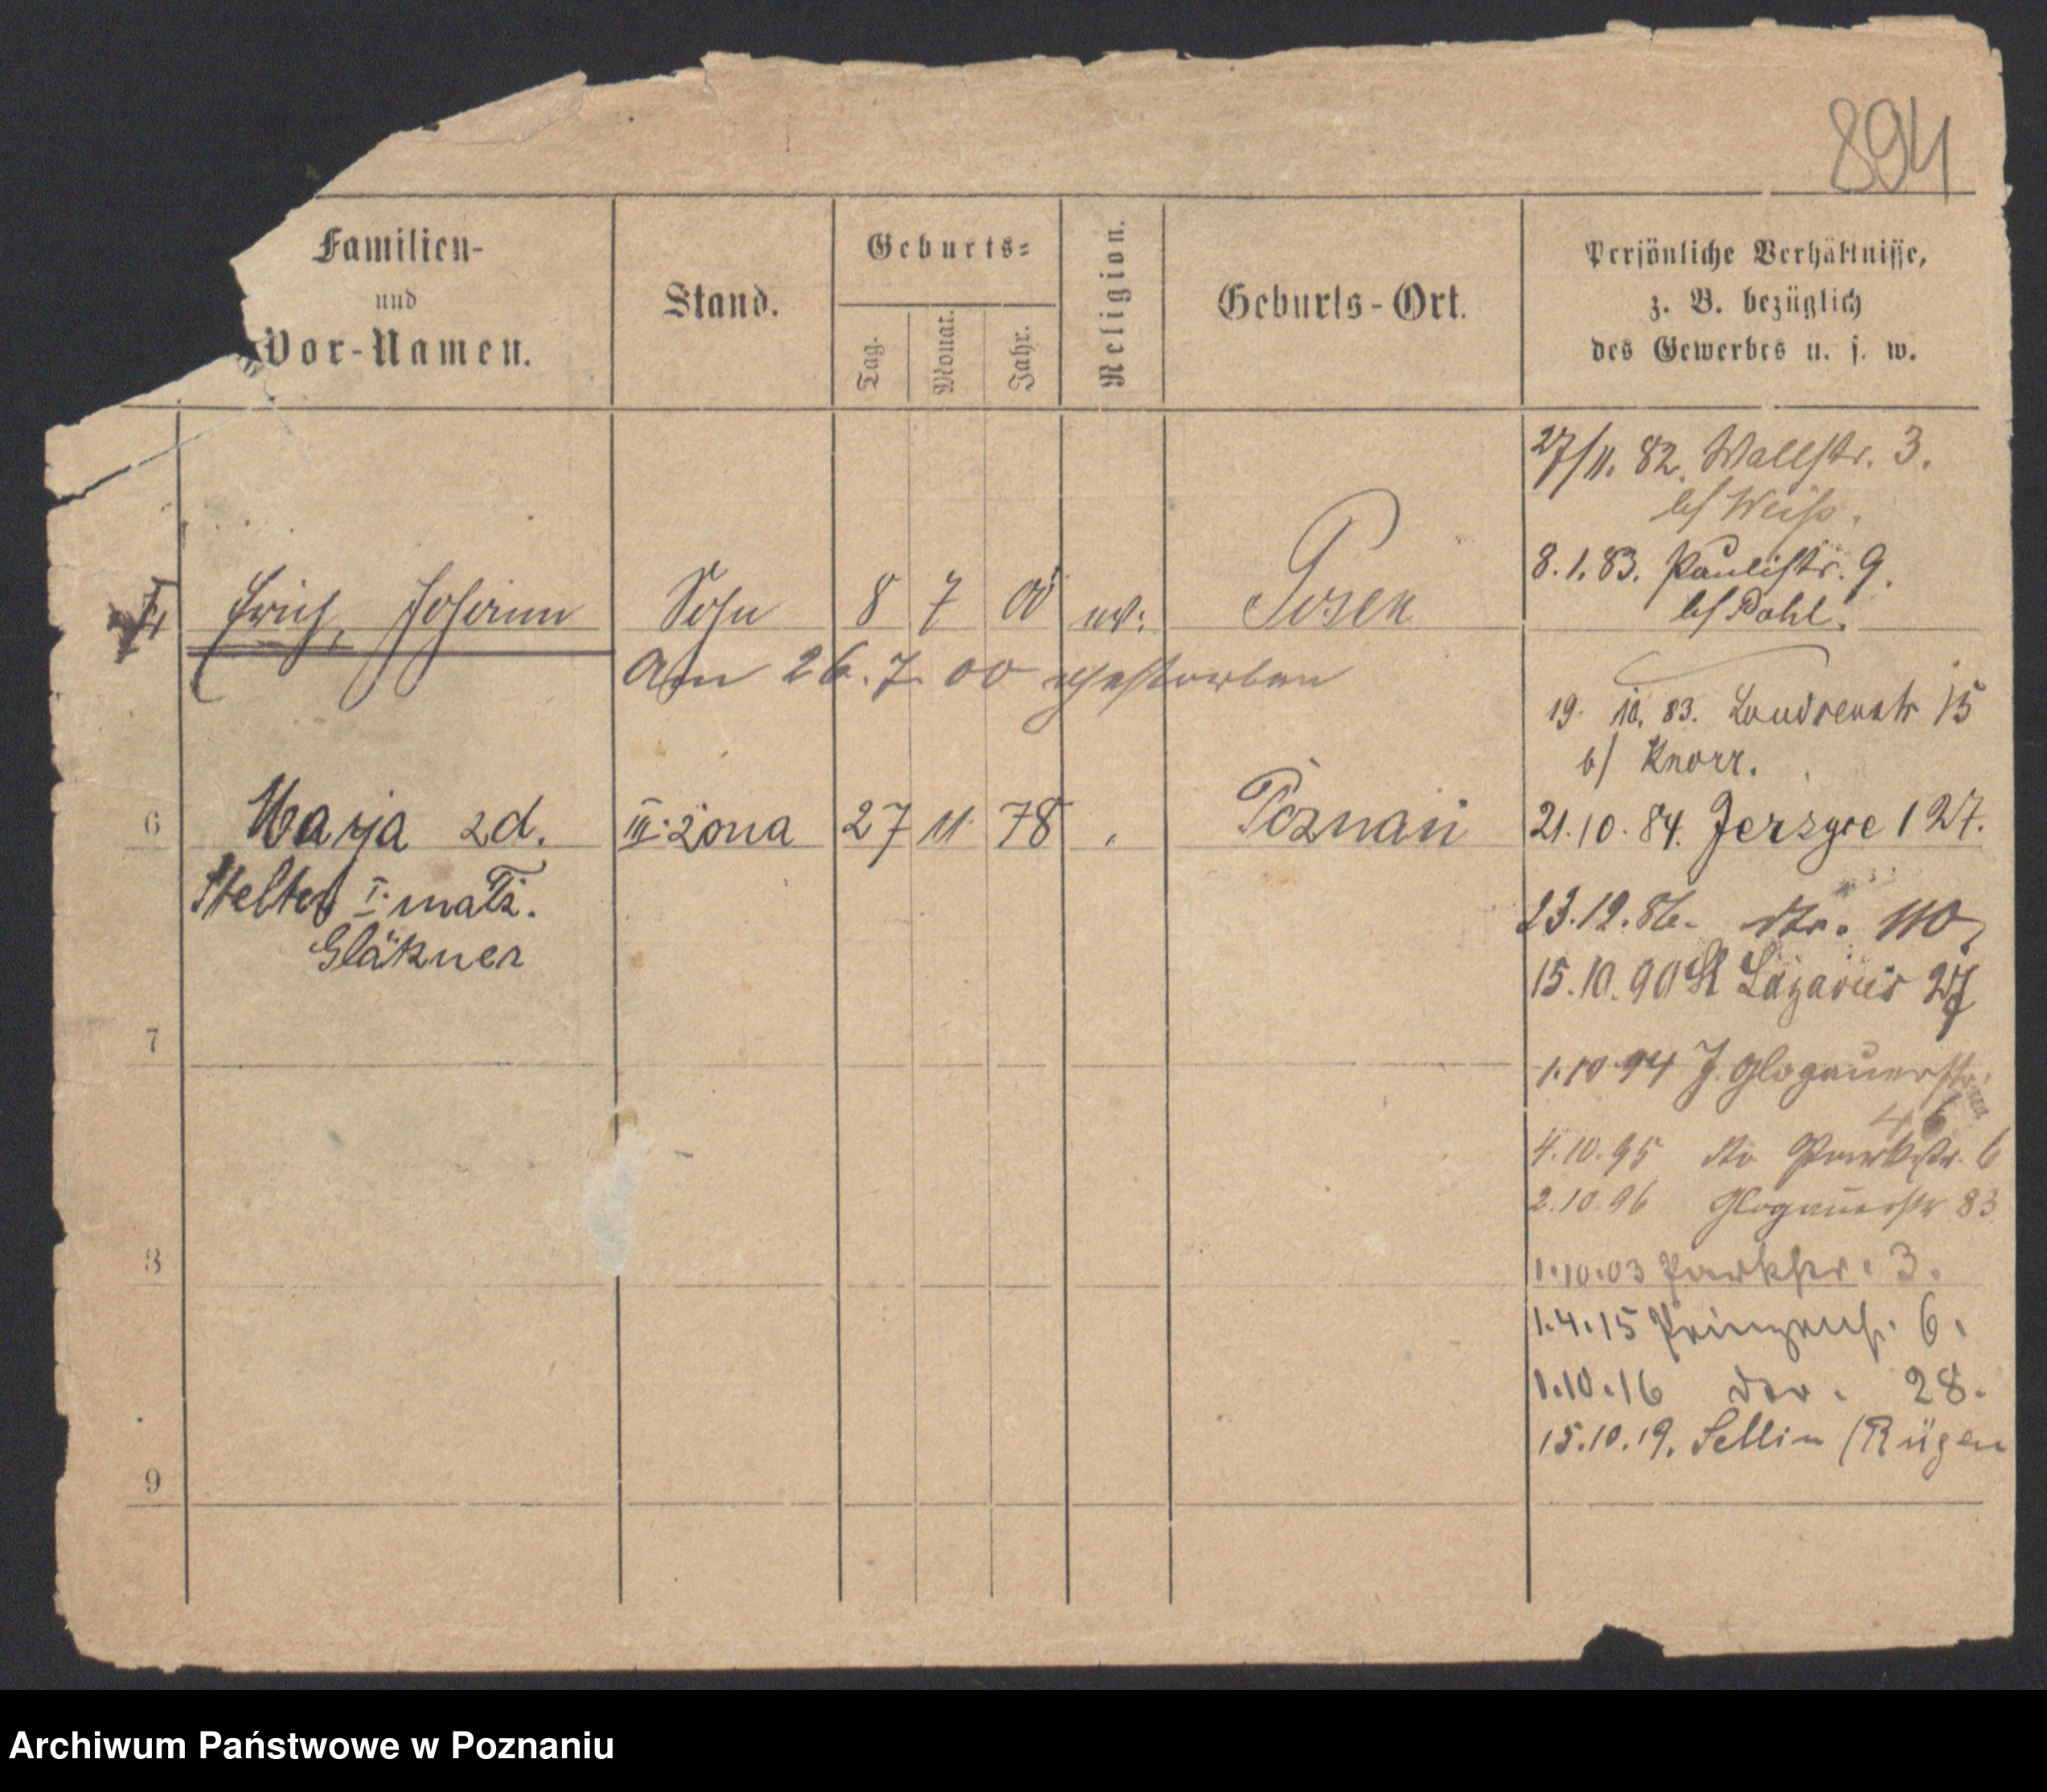 894
Familien-
und
Vor-Namen.
Stand.
Geburts-
Tag.
Monat.
Jahr.
Religion.
Geburts-Ort.
Persönliche Verhältnisse,
z. B. bezüglich
des Gewerbes u. s. w.
27/11. 82. Wallstr. 3.
b/ Weiß.
8.1.83. Paulistr. 9.
b/ Pohl.
Erich, Johann Sohn 8 7 00 ev. Posen
Am 26.7.00 gestorben
19. 10. 83. 15
b/ Knorr.
6 Marja zd. III. żona 27 11 78 " Poznań
Stelter I. małż.
Gläkner
21.10.84. Jersyce 127.
23.12.86. dto. 110,
15.10.90 St Lazarus 27
7
1.10 94 J. Glogauerstr.
46
4.10.95 dto Parkstr. 6
2.10.96 Glogauerstr 83
8
1.10.03 Parkstr. 3.
1.4.15 Prinzenstr. 6.
1.10.16 28.
15.10.19. Sellin (Rügen
9
Archiwum Państwowe w Poznaniu